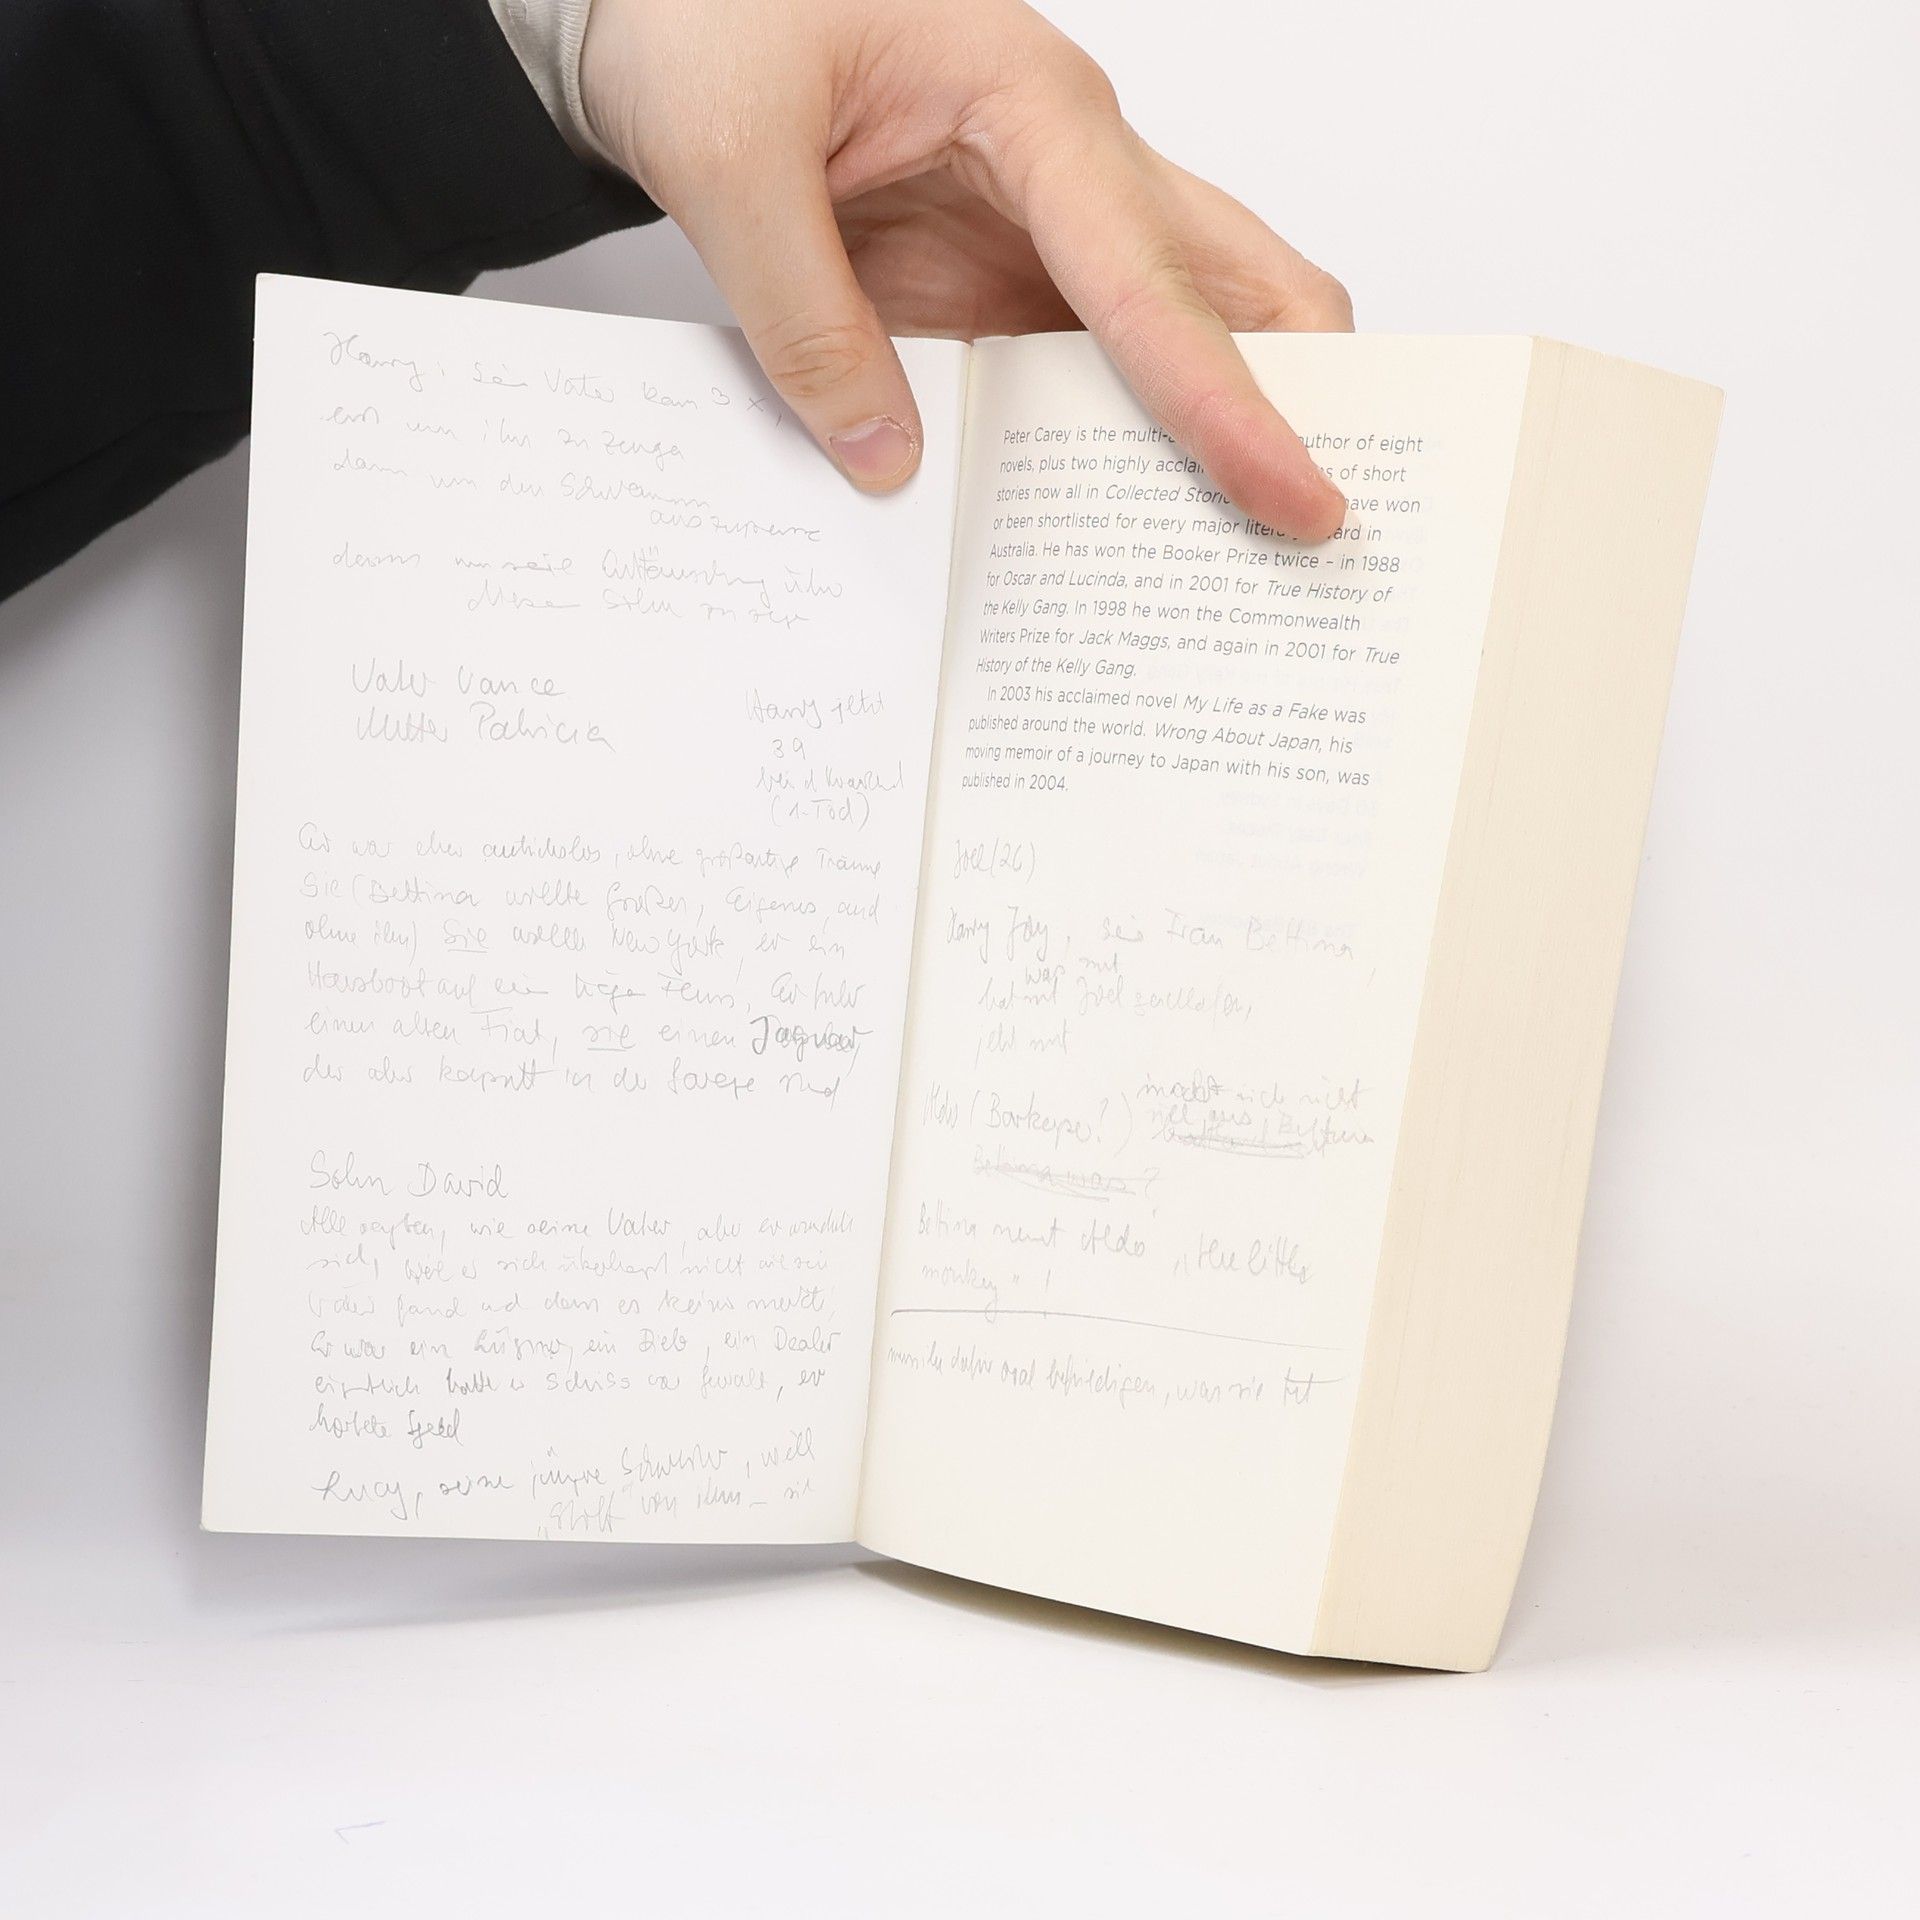 Harry: Sein Vater kam 3 x,
erst um ihn zu zeugen
dann um den Schwamm
auszupressen
dann um seine Enttäuschung über
diesen Sohn zu
Vater Vance
Mutter Patricia
Harry jetzt
39
bei d
(1. Tod)
Er war eher ambitionslos, ohne großartige Träume
Sie (Bettina wollte Großes, Eigenes, und
ohne ihn) Sie wollte New York, er ein
Hausboot auf einem Fluss, Er fuhr
einen alten Fiat, sie einen Jaguar,
der aber kaputt in der Garage stand
Sohn David
Alle sagten, wie seine Vater, aber er wunderte
sich, weil er sich überhaupt nicht wie sein
Vater fand und dass es keiner merkt,
Er war ein Lügner, ein Dieb, ein Dealer
eigentlich hatte er Schiss vor Gewalt, er
hortete Geld
Lucy, seine jüngere Schwester, will
"Stoff" von ihm – sie
Peter Carey is the author of eight
novels, plus two highly of short
stories now all in Collected have won
or been shortlisted for every major in
Australia. He has won the Booker Prize twice – in 1988
for Oscar and Lucinda, and in 2001 for True History of
the Kelly Gang. In 1998 he won the Commonwealth
Writers Prize for Jack Maggs, and again in 2001 for True
History of the Kelly Gang.
In 2003 his acclaimed novel My Life as a Fake was
published around the world. Wrong About Japan, his
moving memoir of a journey to Japan with his son, was
published in 2004.
Joel (26)
Harry Joy, seine Frau Bettina,
was mit
hat mit Joel geschlafen,
jetzt mit
Aldo (Barkeeper?) macht sich nicht
viel aus Bettina
Bettina was ?
Bettina nennt Aldo "the little
monkey" !
muss ihn dafür oral befriedigen, was sie tut